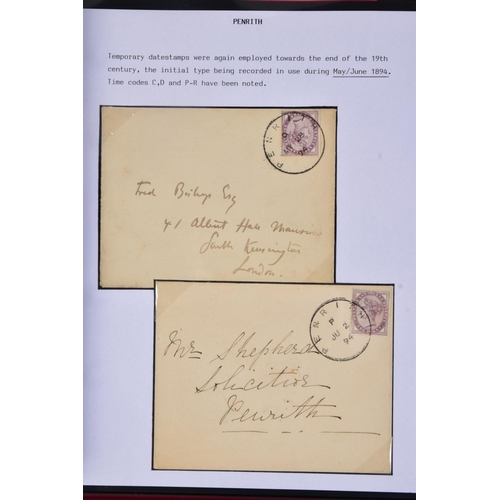 PENRITH
Temporary datestamps were again employed towards the end of the 19th
century, the initial type being recorded in use during May/June 1894.
Time codes C,D and P-R have been noted.
PENRITH
Fred Bishop Esq
41 Albert Hall Mansions
South Kensington
London.
PENRITH
P
JU 2
94
Mr Shepherd
Solicitor
Penrith